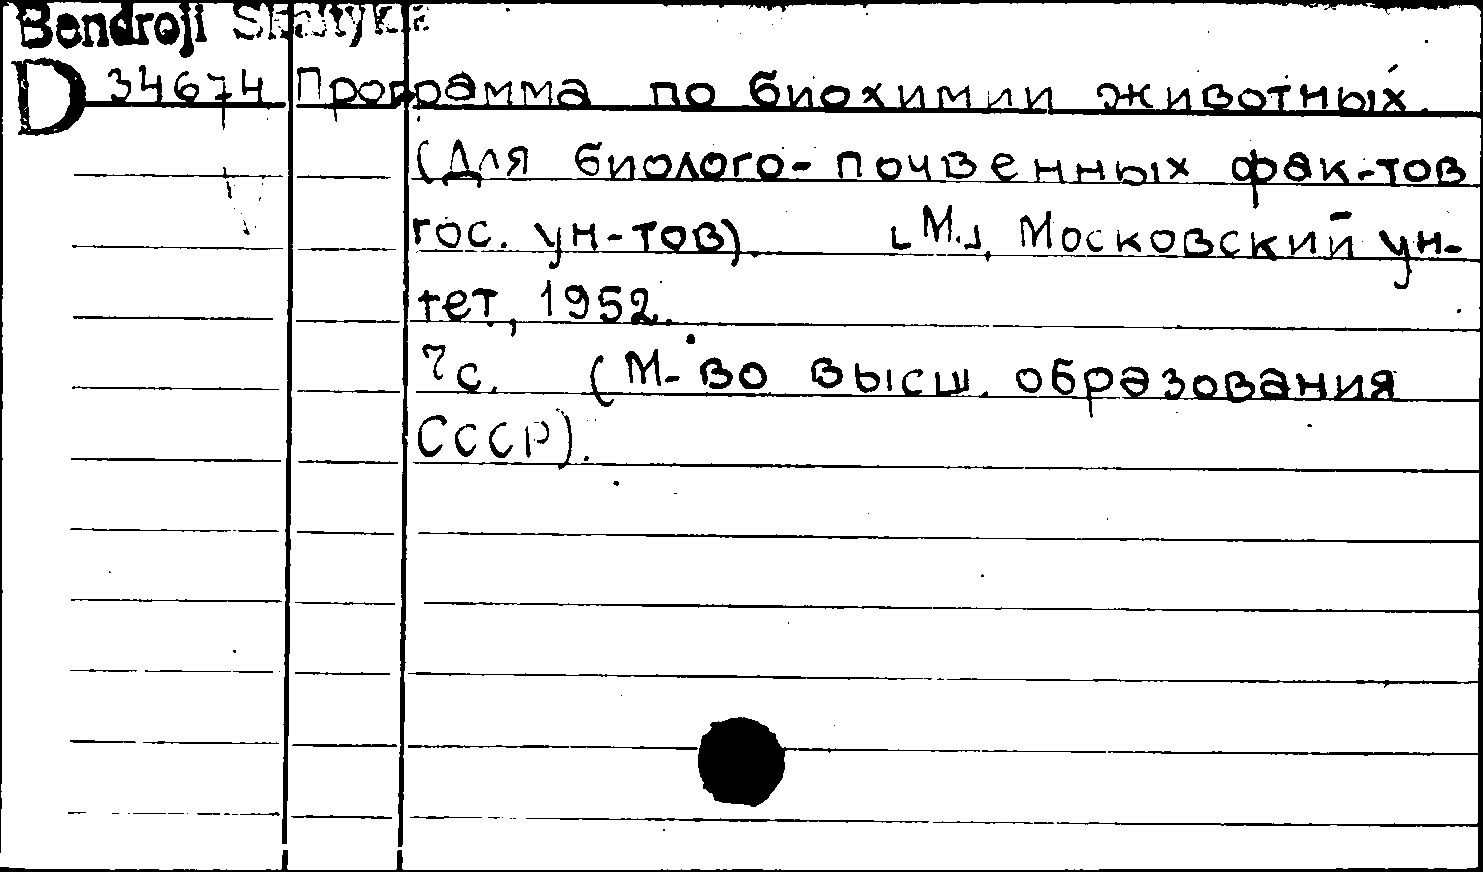 Bendroji Skaitykla
D 34674 Программа по биохимии животных.
(Для биолого-почвенных фак-тов
гос. ун-тов). [М.], Московский ун-
тет, 1952.
7с. (М-во высш. образования
СССР).